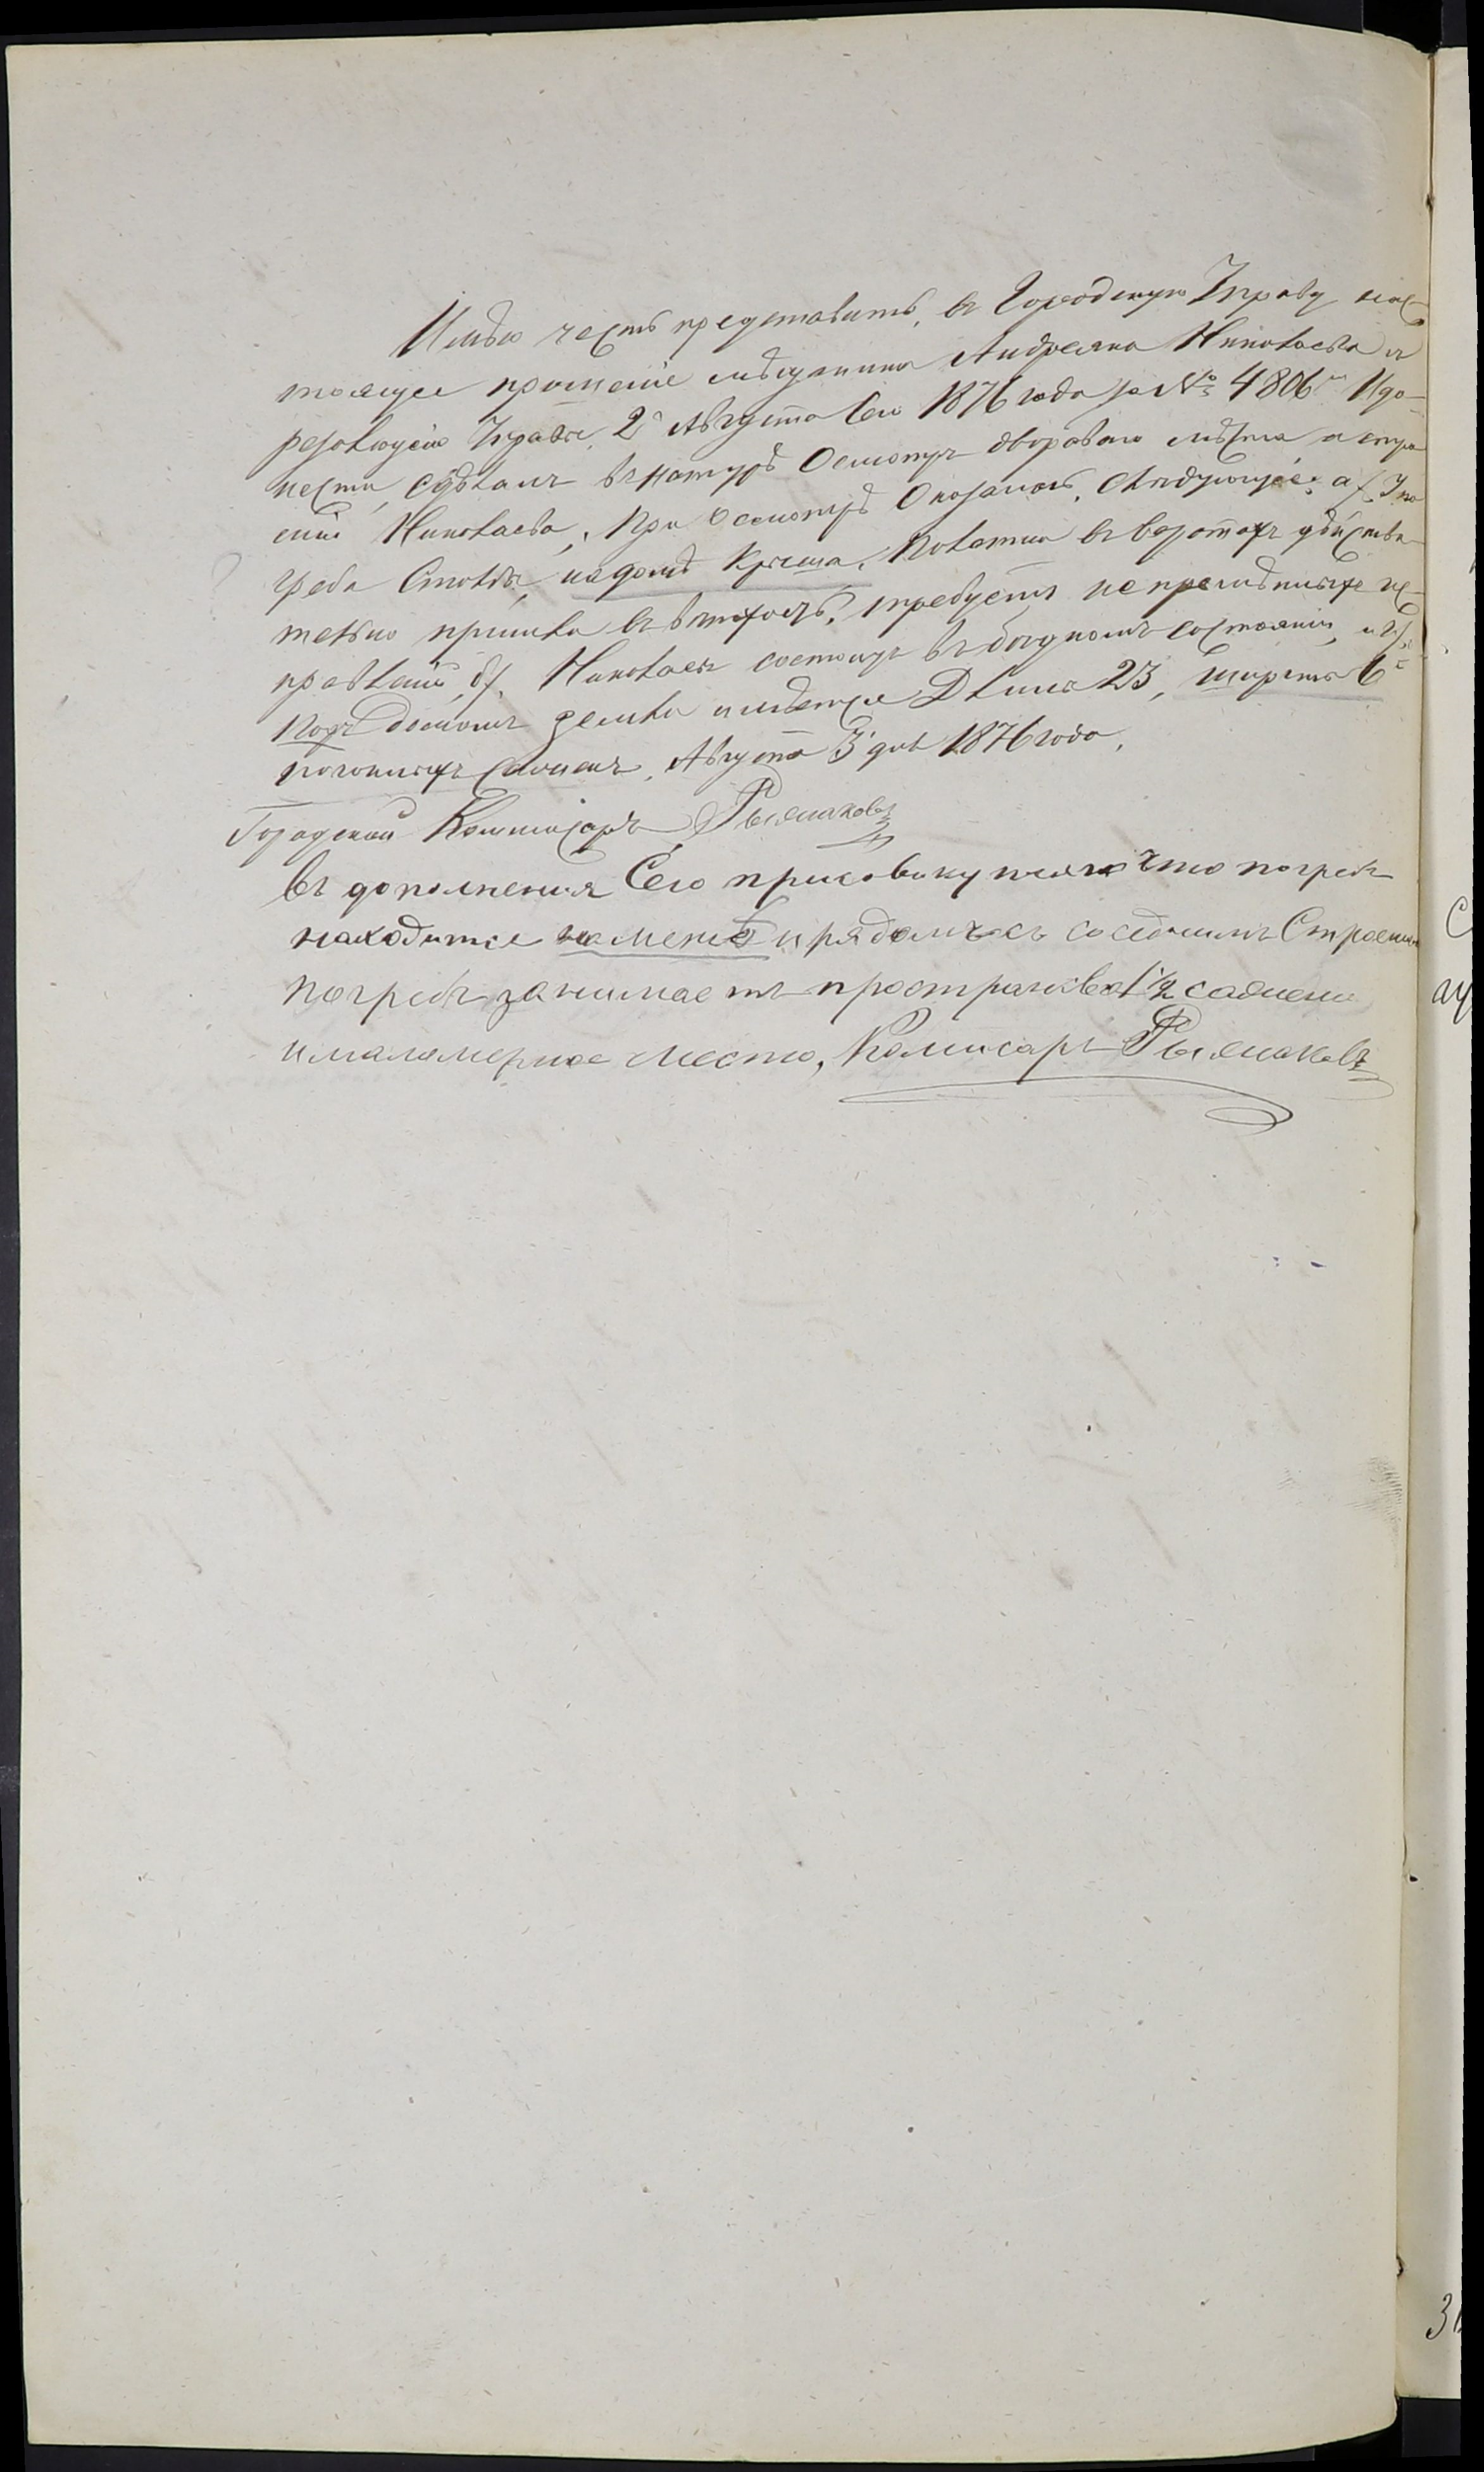 Имѣю честь представить, въ Городскую Управу нас-
тоящее прошеніе мѣщанина Андреяна Николаева и
резолюцію Управы, 2го Августа Сего 1876 года за № 4806м И до-
нести, сдѣлалъ въ натурѣ Осмотръ двороваго мѣста и стро
енія Николаева, При Осмотрѣ Оказалось, Слѣдующее: а/. У по
греба Столбы, на домѣ Крыша, Полотна въ воротахъ дѣйстви-
тельно пришли въ ветхость, требуетъ не премѣнныхъ ис-
правленій, б/. Николаевъ состоитъ въ бѣдномъ состояніи,
Подъ домомъ земли имѣется Длины 23, Ширины 6
погонныхъ Саженъ, Августа 3 дня 1876 года,
Городской Коммисаръ
въ дополнения Сего присовокупляю что погребъ
находится на меже и рядомъ съ соседнимъ Строенiем
Погребъ занимаетъ пространсво 1 1/2 сажени
и маломерное место, Комисаръ